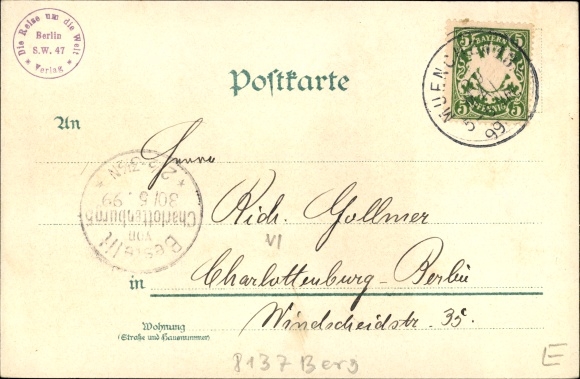 Die Reise um die Welt
Berlin
S.W. 47
* Verlag *
BAYERN
5 5
5 5
PFENNIG
MUENC
99
Postkarte
An
Herrn
Rich. Gollmer
VI
in Charlottenburg-Berlin
Windscheidstr. 35.
Wohnung
(Straße und Hausnummer)
Bestellt
von
Charlottenburg 5
30/5.99
8137 Berg
E